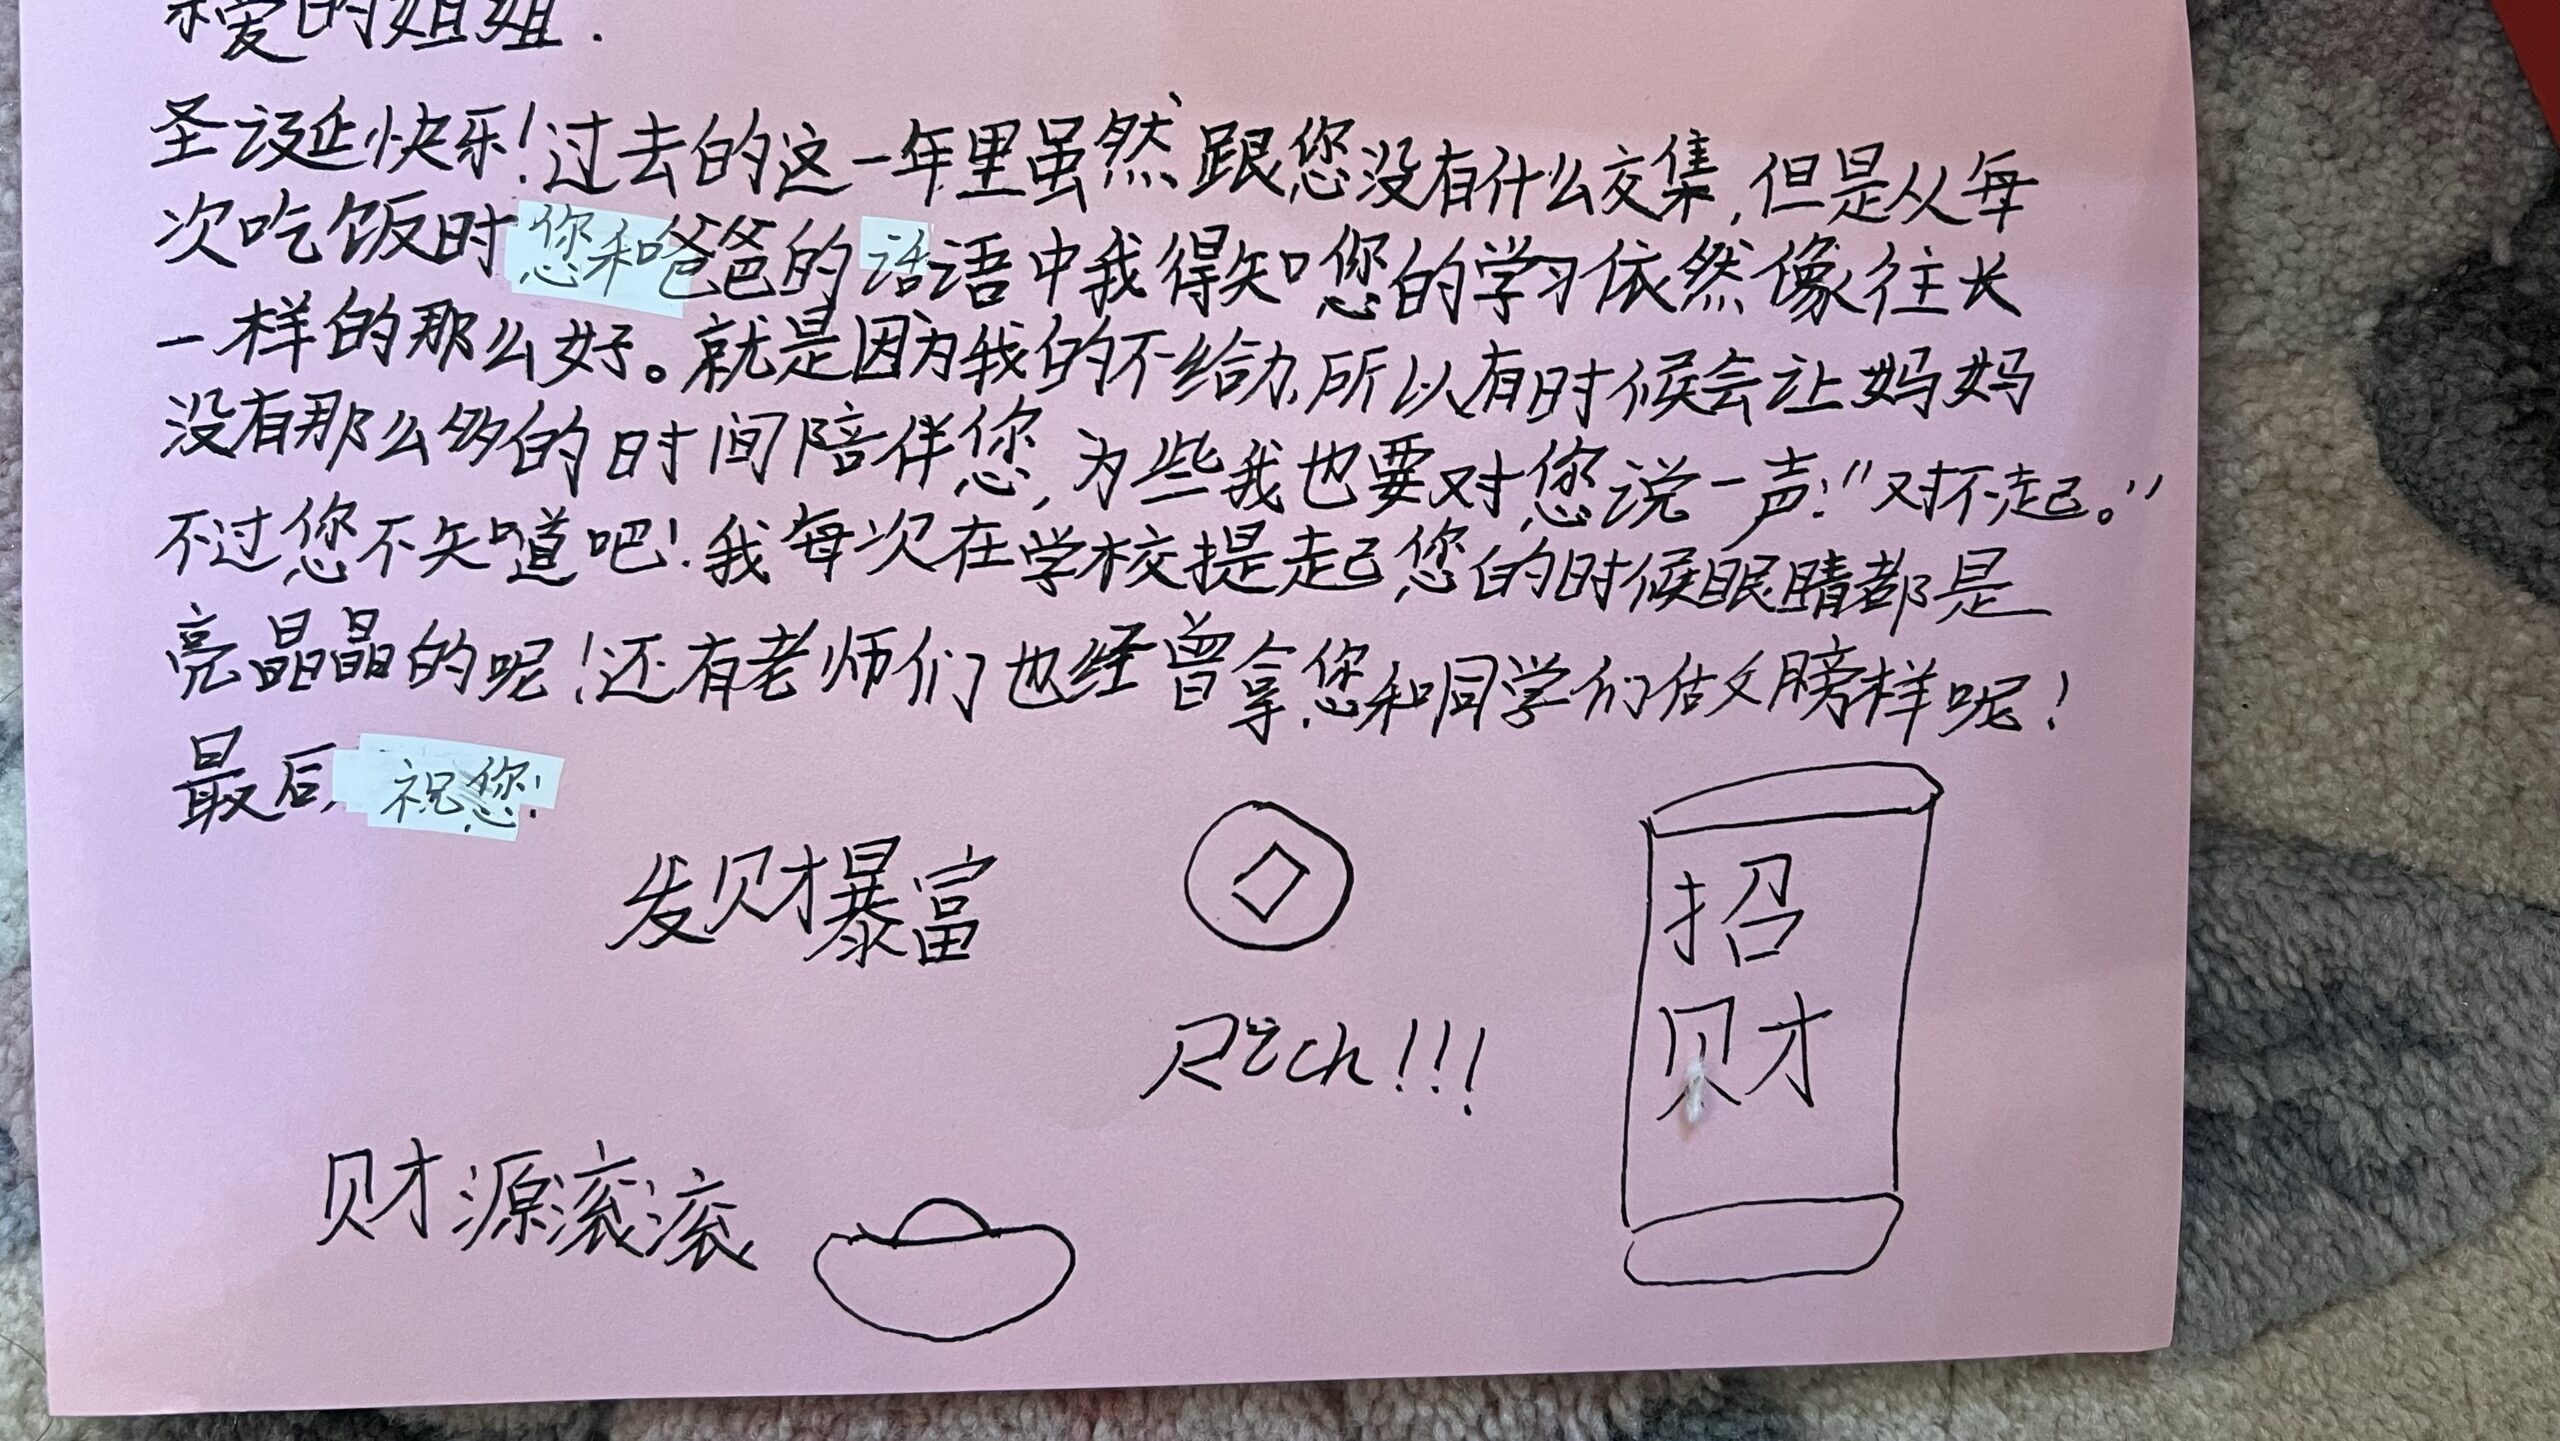 亲爱的姐姐.
圣诞快乐!过去的这一年里虽然跟您没有什么交集,但是从每
次吃饭时您和爸爸的话语中我得知您的学习依然像往长
一样的那么好。就是因为我的不给力,所以有时候会让妈妈
没有那么多的时间陪伴您,为些我也要对您说一声:"对不起。"
不过您不知道吧!我每次在学校提起您的时候眼睛都是
亮晶晶的呢!还有老师们也经曾拿您和同学们做膀样呢!
最后,祝您!
发财暴富
Rich!!!
招
财
财源滚滚